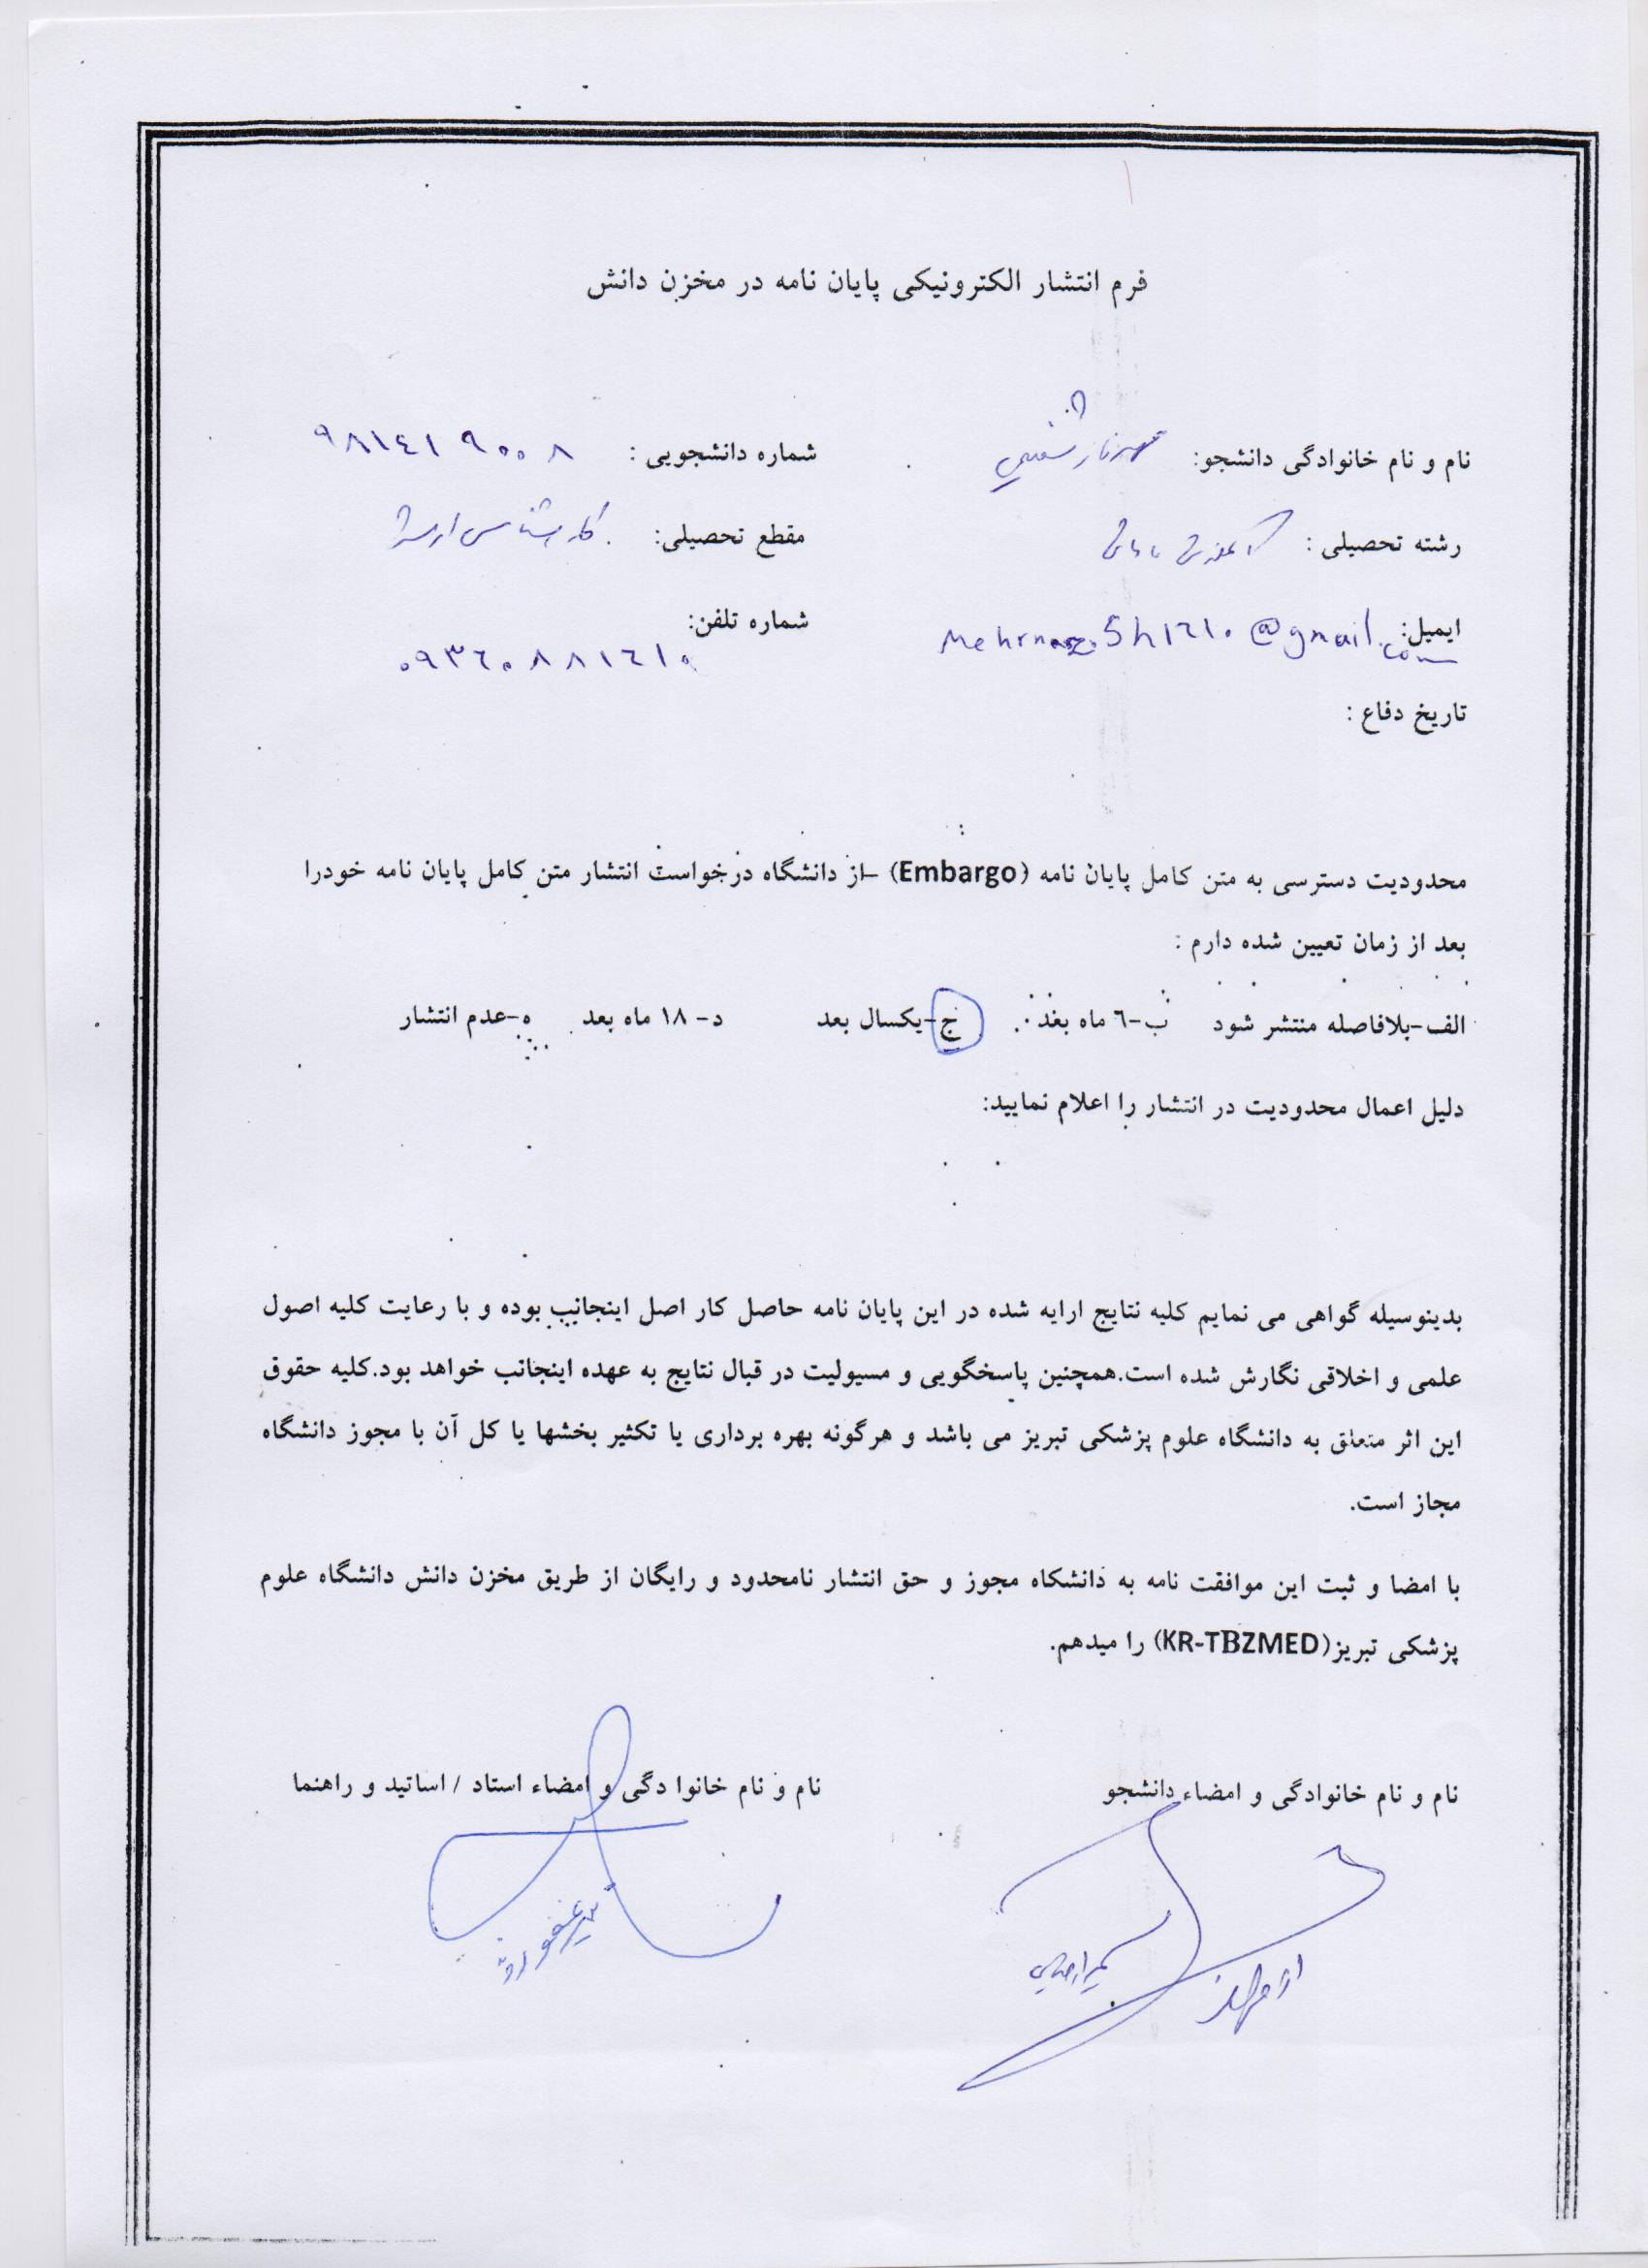 فرم انتشار الکترونیکی پایان نامه در مخزن دانش
نام و نام خانوادگی دانشجو: مهرناز شفیعی شماره دانشجویی : ۹۸۱٤۱۹۰۰۸
رشته تحصیلی : مقطع تحصیلی: کارشناسی ارشد
ایمیل: Mehrnaz.Sh1210@gmail.com شماره تلفن:
۰۹۳٦۰۸۸۱۲۱۰
تاریخ دفاع :
محدودیت دسترسی به متن کامل پایان نامه (Embargo) –از دانشگاه درخواست انتشار متن کامل پایان نامه خودرا
بعد از زمان تعیین شده دارم :
الف-بلافاصله منتشر شود ب-٦ ماه بعد ج-یکسال بعد د- ۱۸ ماه بعد ه-عدم انتشار
دلیل اعمال محدودیت در انتشار را اعلام نمایید:
بدینوسیله گواهی می نمایم کلیه نتایج ارایه شده در این پایان نامه حاصل کار اصل اینجانب بوده و با رعایت کلیه اصول
علمی و اخلاقی نگارش شده است.همچنین پاسخگویی و مسیولیت در قبال نتایج به عهده اینجانب خواهد بود.کلیه حقوق
این اثر متعلق به دانشگاه علوم پزشکی تبریز می باشد و هرگونه بهره برداری یا تکثیر بخشها یا کل آن با مجوز دانشگاه
مجاز است.
با امضا و ثبت این موافقت نامه به دانشکاه مجوز و حق انتشار نامحدود و رایگان از طریق مخزن دانش دانشگاه علوم
پزشکی تبریز(KR-TBZMED) را میدهم.
نام و نام خانوادگی و امضاء دانشجو نام و نام خانوا دگی و امضاء استاد / اساتید و راهنما